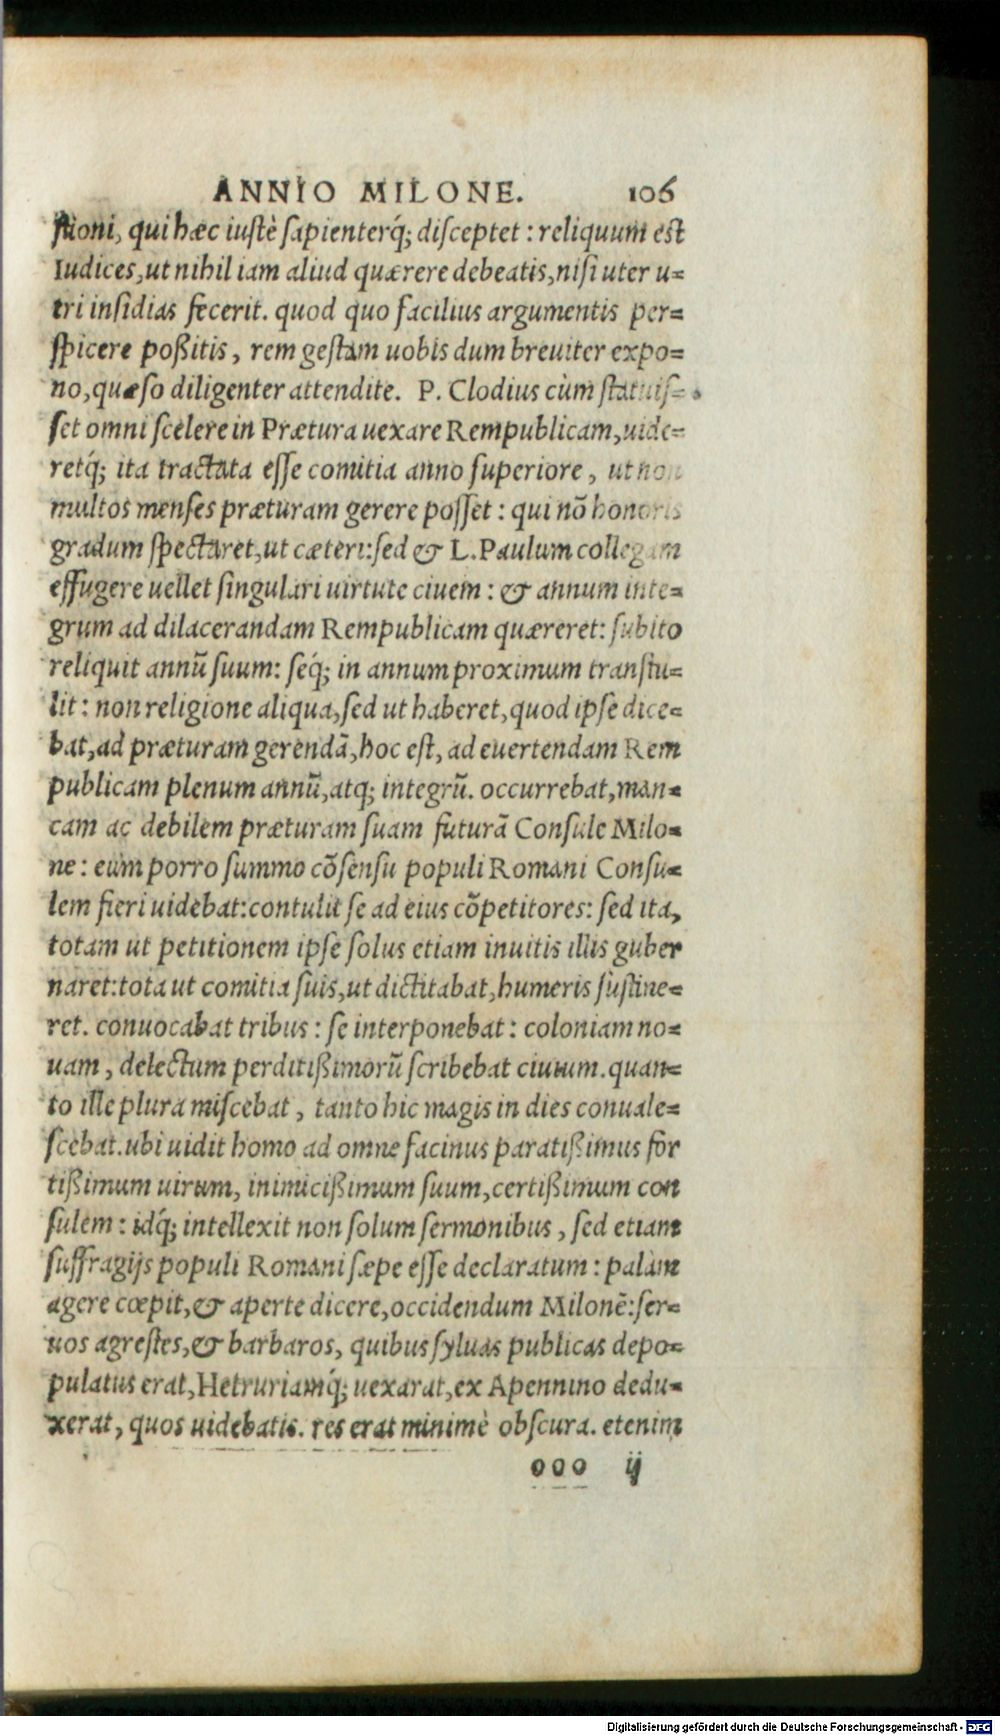 ANNIO MILONE. 106
ſtioni, qui hæc iuſtè ſapienterq́; diſceptet : reliquum eſt
Iudices,ut nihil iam aliud quærere debeatis,niſi uter u=
tri inſidias fecerit. quod quo facilius argumentis per=
ſpicere poßitis, rem geſtam uobis dum breuiter expo=
no,quæſo diligenter attendite. P. Clodius cùm ſtatuiſ=
ſet omni ſcelere in Prætura uexare Rempublicam,uide=
retq́; ita tractata eſſe comitia anno ſuperiore, ut non
multos menſes præturam gerere poſſet : qui nõ honoris
gradum ſpectaret,ut cæteri:ſed & L.Paulum collegam
effugere uellet ſingulari uirtute ciuem : & annum inte=
grum ad dilacerandam Rempublicam quæreret: ſubito
reliquit annũ ſuum: ſeq́; in annum proximum tranſtu=
lit : non religione aliqua,ſed ut haberet,quod ipſe dice=
bat,ad præturam gerendã,hoc eſt, ad euertendam Rem
publicam plenum annũ,atq; integrũ. occurrebat,man=
cam ac debilem præturam ſuam futurã Conſule Milo=
ne : eum porro ſummo cõſenſu populi Romani Conſu=
lem fieri uidebat:contulit ſe ad eius cõpetitores: ſed ita,
totam ut petitionem ipſe ſolus etiam inuitis illis guber
naret:tota ut comitia ſuis,ut dictitabat,humeris ſuſtine=
ret. conuocabat tribus : ſe interponebat : coloniam no=
uam, delectum perditißimorũ ſcribebat ciuium.quan=
to ille plura miſcebat, tanto hic magis in dies conuale=
ſcebat.ubi uidit homo ad omne facinus paratißimus for
tißimum uirum, inimicißimum ſuum,certißimum con
ſulem : idq́; intellexit non ſolum ſermonibus, ſed etiam
ſuffragijs populi Romani ſæpe eſſe declaratum : palàm
agere cœpit,& aperte dicere,occidendum Milonẽ:ſer=
uos agreſtes,& barbaros, quibus ſyluas publicas depo=
pulatus erat,Hetruriamq́; uexarat,ex Apennino dedu=
xerat, quos uidebatis. res erat minimè obſcura. etenim
ooo ij
Digitalisierung gefördert durch die Deutsche Forschungsgemeinschaft - DFG